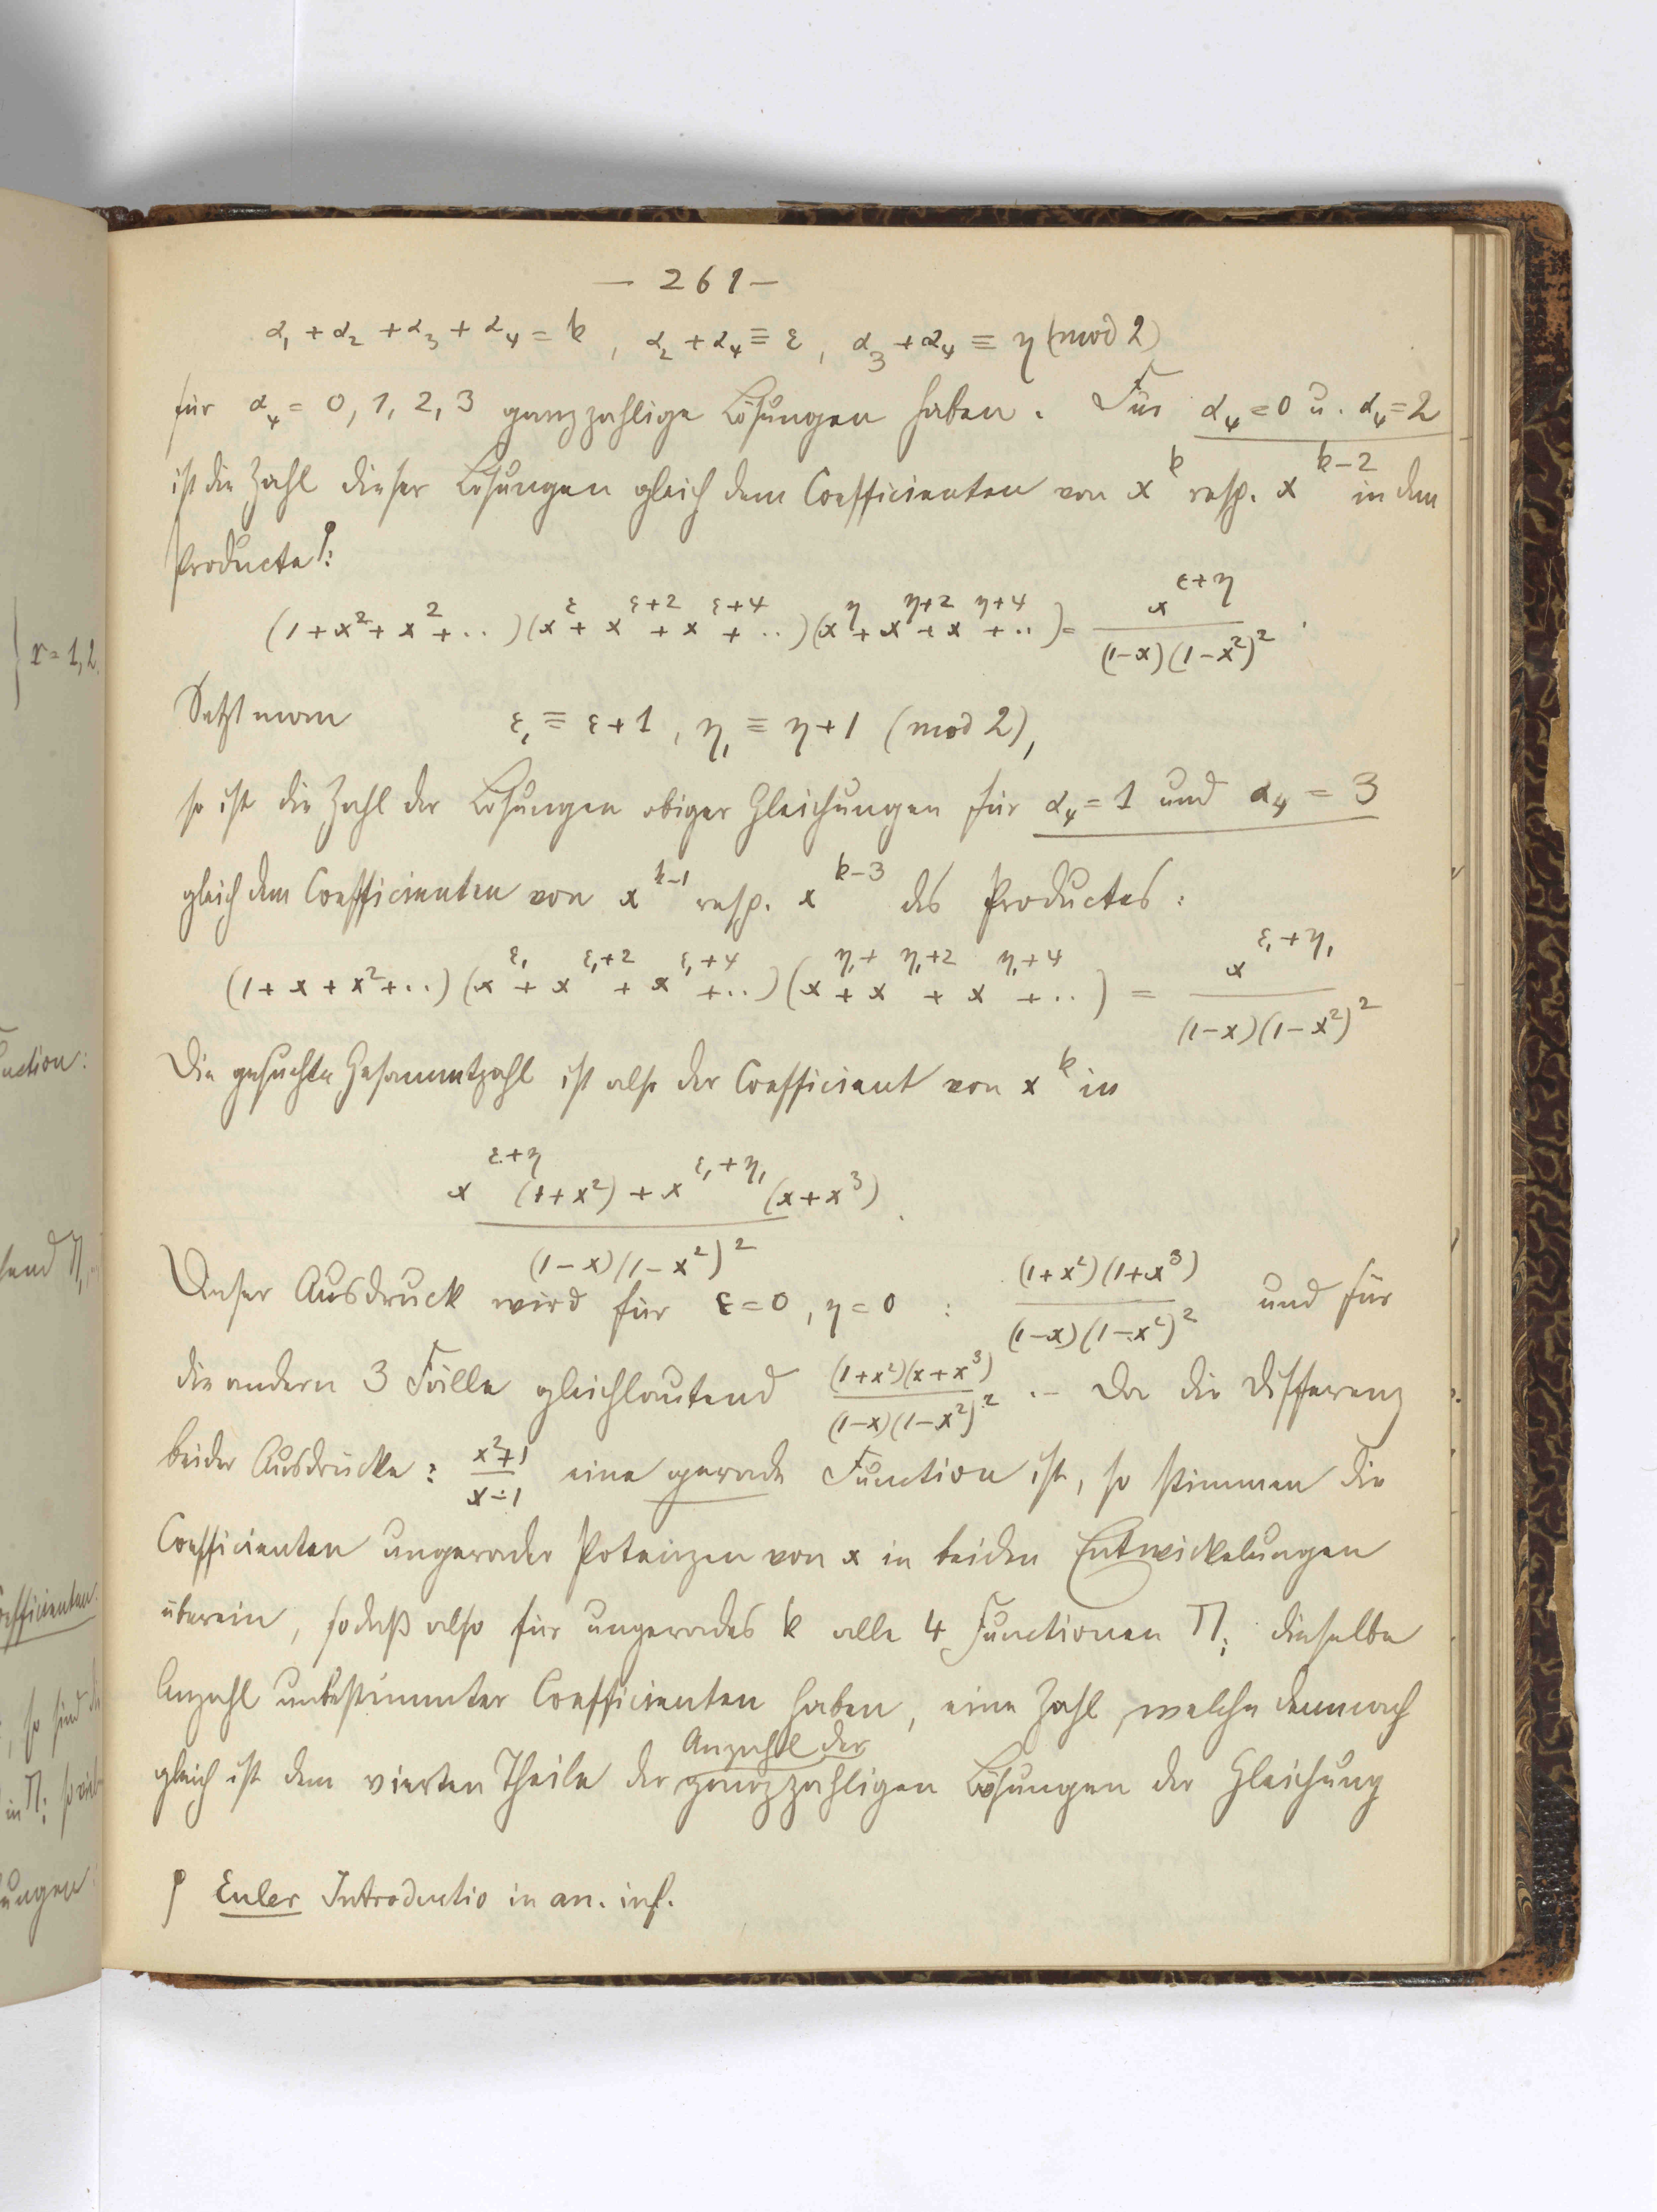 — 261 —
α₁ + α₂ + α₃ + α₄ = k , α₂ + α₄ ≡ ε , α₃ + α₄ ≡ η (mod 2)
für α₄ = 0, 1, 2, 3 ganzzahlige Lösungen haben. Für α₄ = 0 u. α₄ = 2
ist die Zahl dieser Lösungen gleich dem Coefficienten von x^k resp. x^{k-2} in dem
Producte ⫯:
(1 + x² + x² + ..)(x^ε + x^{ε+2} + x^{ε+4} + ..)(x^η + x^{η+2} + x^{η+4} + ..) = x^{ε+η} / (1-x)(1-x²)² .
Setzt man ε₁ ≡ ε+1 , η₁ ≡ η+1 (mod 2),
so ist die Zahl der Lösungen obiger Gleichungen für α₄ = 1 und α₄ = 3
gleich dem Coefficienten von x^{k-1} resp. x^{k-3} des Productes:
(1 + x + x² + ..)(x^{ε₁} + x^{ε₁+2} + x^{ε₁+4} + ..)(x^{η₁+} + x^{η₁+2} + x^{η₁+4} + ..) = x^{ε₁+η₁} / (1-x)(1-x²)²
Die gesuchte Gesammtzahl ist also der Coefficient von x^k in
x^{ε+η}(1+x²) + x^{ε₁+η₁}(x+x³) / (1-x)(1-x²)² .
Unser Ausdruck wird für ε=0, η=0 : (1+x²)(1+x³) / (1-x)(1-x²)² und für
die andern 3 Fälle gleichlautend (1+x²)(x+x³) / (1-x)(1-x²)² .— Da die Differenz
beider Ausdrücke: x²+1 / x-1 eine gerade Function ist, so stimmen die
Coefficienten ungerader Potenzen von x in beiden Entwickelungen
überein, sodaß also für ungerades k alle 4 Functionen Πᵢ dieselbe
Anzahl unbestimmter Coefficienten haben, eine Zahl, welche demnach
gleich ist dem vierten Theile der Anzahl der ganzzahligen Lösungen der Gleichung
⫯ Euler Introductio in an. inf.
r = 1, 2.
nction:
oefficienten.
so sind
in Πᵢ
ungen